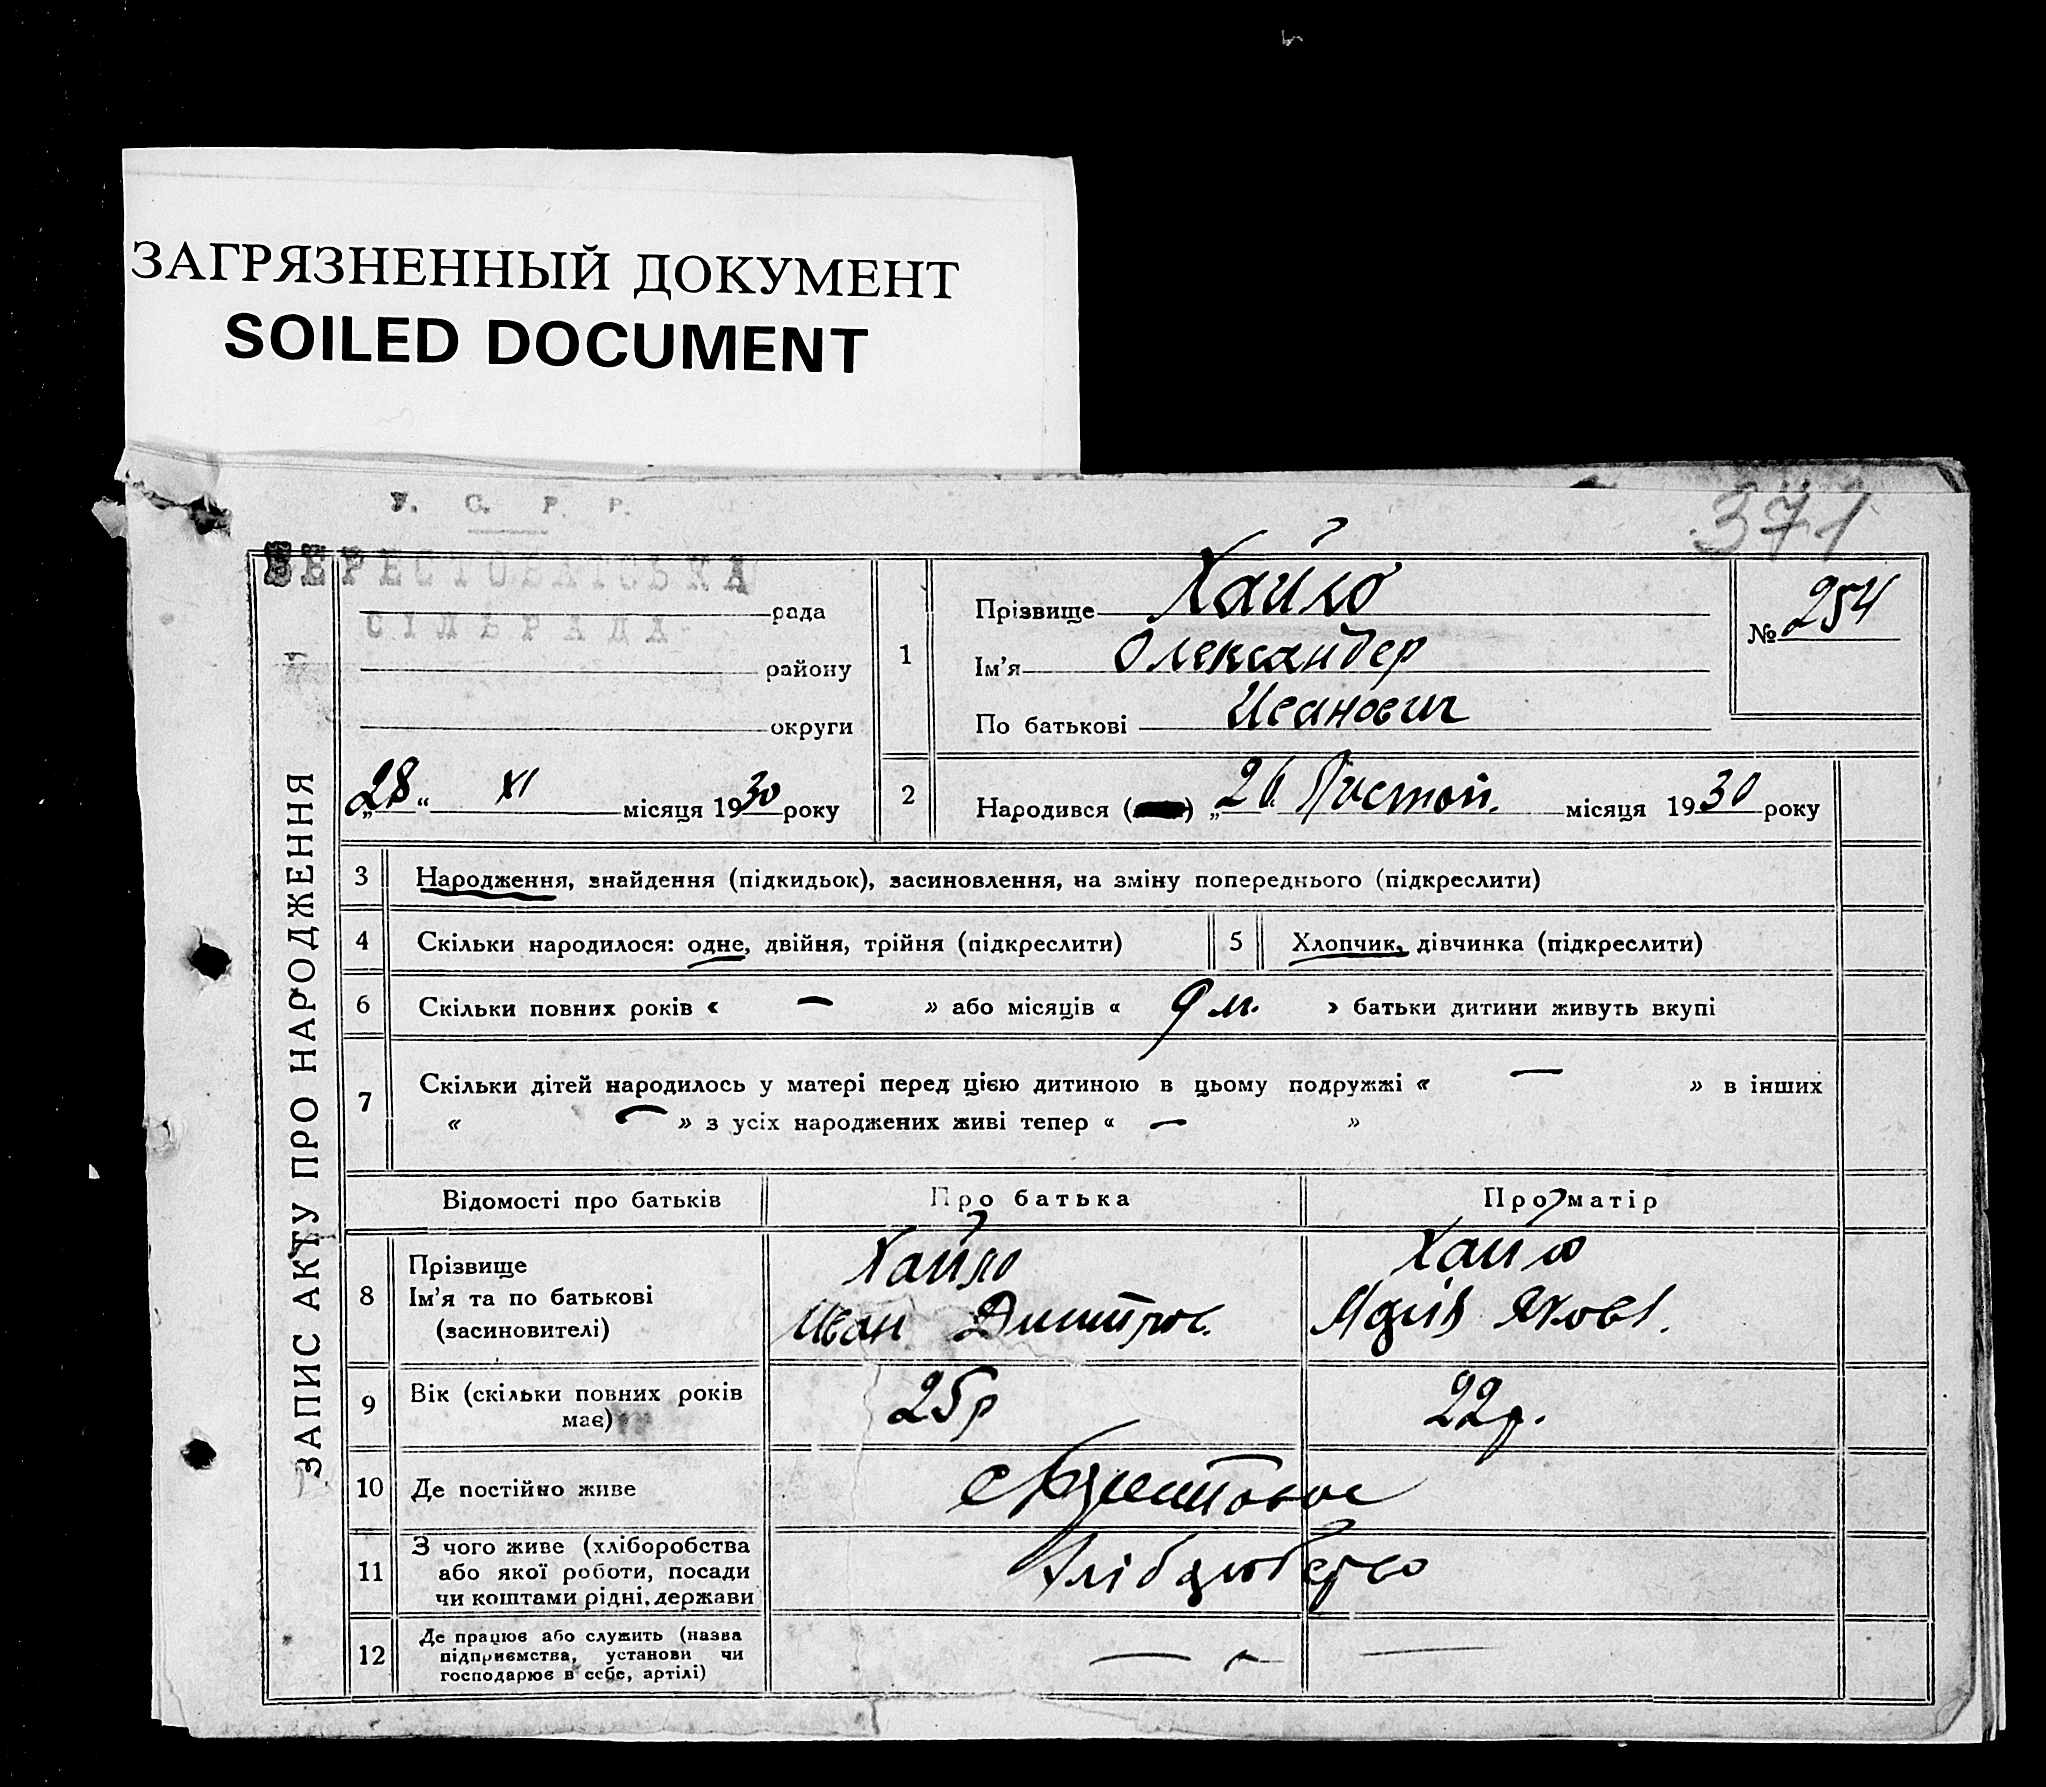 ЗАГРЯЗНЕННЫЙ ДОКУМЕНТ
SOILED DOCUMENT
У. С. Р. Р.
371
БЕРЕСТОВАТСЬКА
рада
СІЛЬРАДА
району
округи
„28“ XI місяця 1930 року
ЗАПИС АКТУ ПРО НАРОДЖЕННЯ
1
Прізвище Хайло
Ім’я Олександер
По батькові Иванович
№ 254
2
Народився ( ) „26 Листоп. місяця 1930 року
3 Народження, знайдення (підкидьок), засиновлення, на зміну попереднього (підкреслити)
4 Скільки народилося: одне, двійня, трійня (підкреслити)
5 Хлопчик, дівчинка (підкреслити)
6 Скільки повних років « — » або місяців « 9 м. » батьки дитини живуть вкупі
7 Скільки дітей народилось у матері перед цією дитиною в цьому подружжі « — » в інших
« — » з усіх народжених живі тепер « — »
Відомості про батьків Про батька Про матір
8 Прізвище Хайло Хайло
Ім’я та по батькові Иван Дмитров. Яковл.
(засиновителі)
9 Вік (скільки повних років має) 25р 22р.
10 Де постійно живе с
11 З чого живе (хліборобства
або якої роботи, посади
чи коштами рідні, держави
12 Де працює або служить (назва
підприємства, установи чи
господарює в себе, артілі) — — —